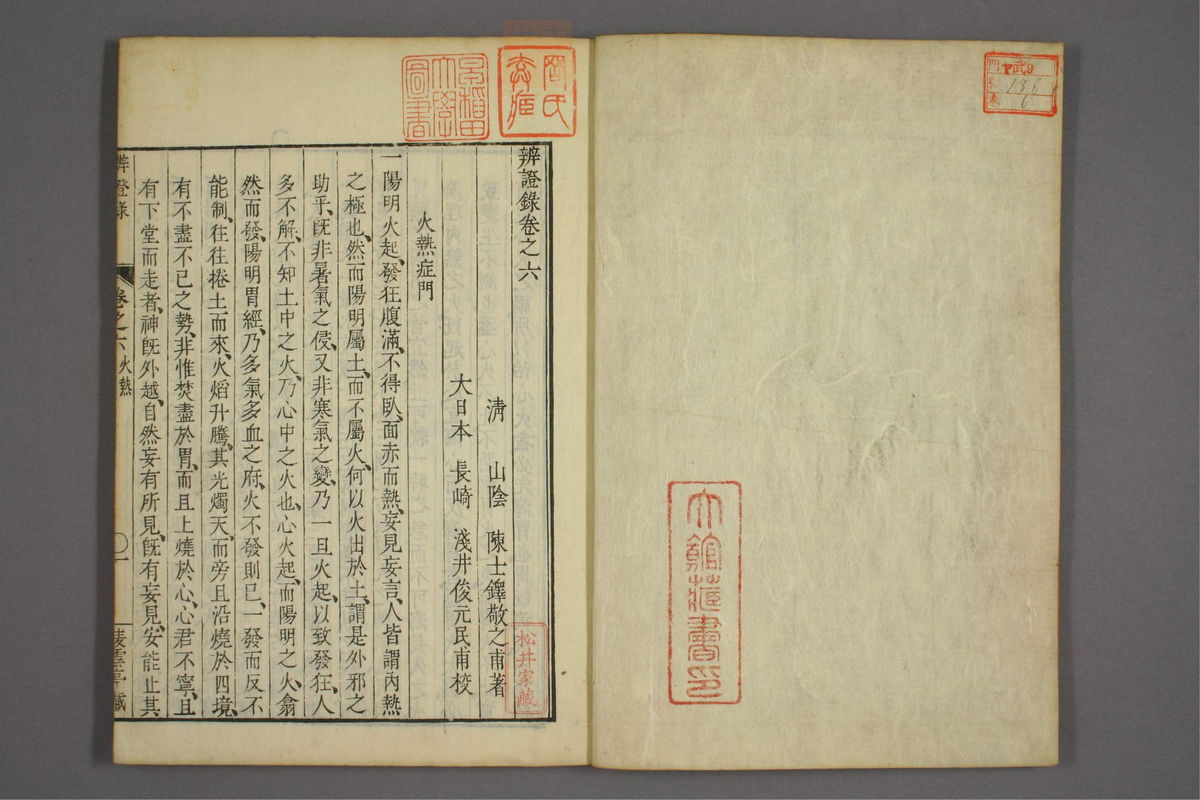 門 武9
號 186
卷 6
大館蔵書印
早稲田
大學
圖書
辨證錄卷之六
清 山陰 陳士鐸敬之甫著
大日本 長崎 淺井俊元民甫校
松井家藏
火熱症門
一陽明火起、發狂腹滿、不得臥、面赤而熱、妄見妄言、人皆謂內熱
之極也、然而陽明屬土、而不屬火、何以火出於土、謂是外邪之
助乎、旣非暑氣之侵、又非寒氣之變、乃一旦火起、以致發狂、人
多不解、不知土中之火、乃心中之火也、心火起、而陽明之火、翕
然而發、陽明胃經、乃多氣多血之府、火不發則已、一發而反不
能制、往往捲土而來、火焰升騰、其光燭天、而旁且沿燒於四境、
有不盡不已之勢、非惟焚盡於胃、而且上燒於心、心君不寧、且
有下堂而走者、神旣外越、自然妄有所見、旣有妄見、安能止其
辨證錄 卷之六 火熱 〇一